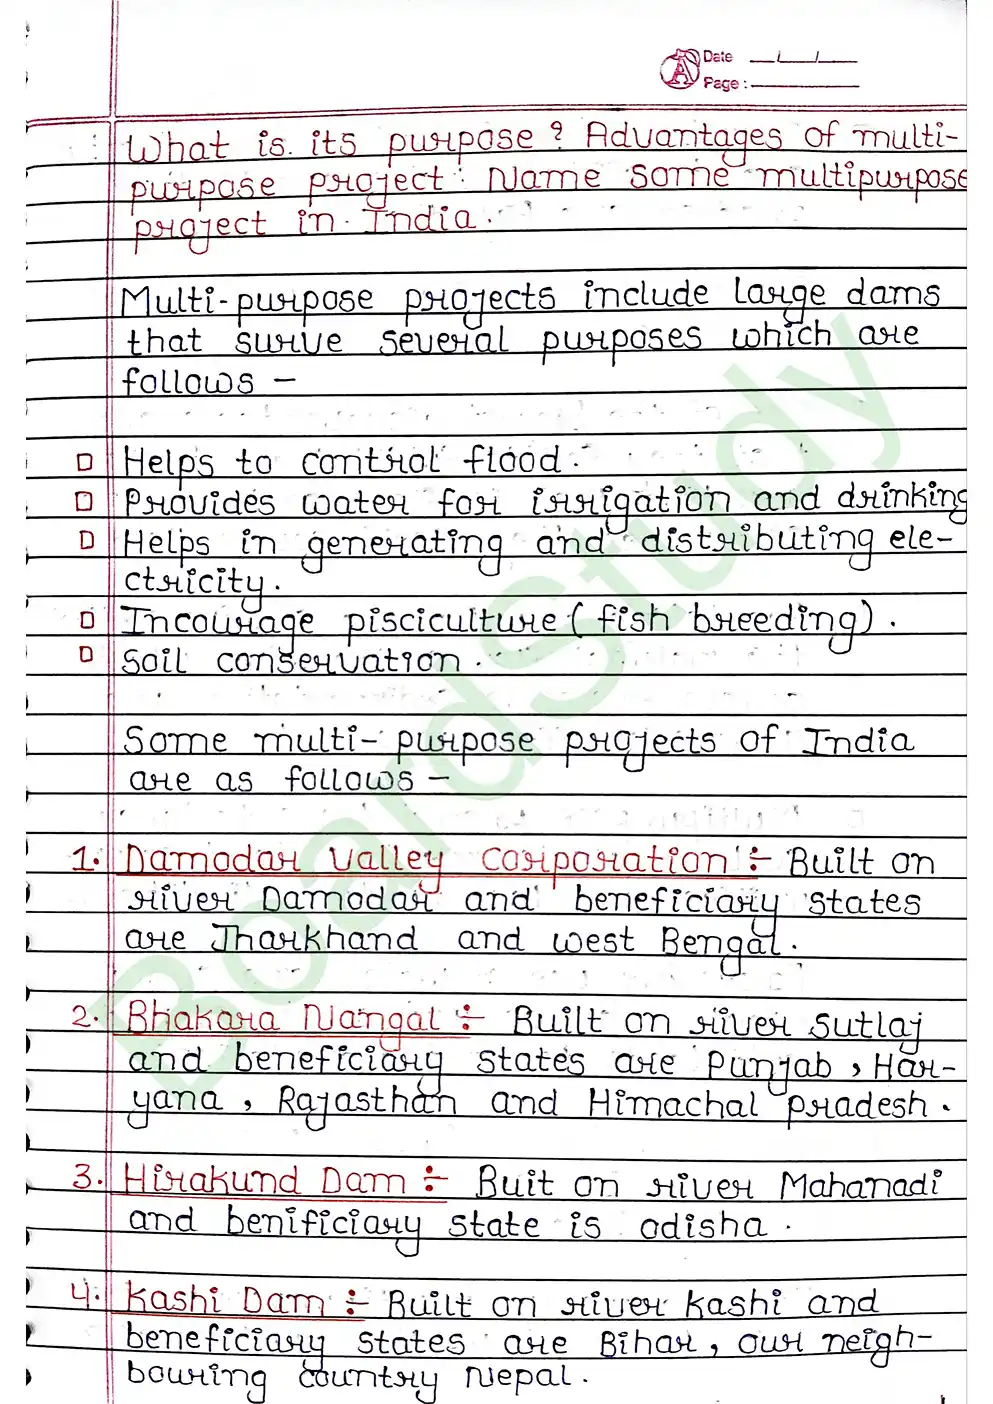 Date __/__/__
Page :
What is its purpose? Advantages of multi-
purpose project. Name some multipurpose
project in India.
Multi-purpose projects include large dams
that surve several purposes which are
follows -
□ Helps to control flood.
□ Provides water for irrigation and drinking
□ Helps in generating and distributing ele-
ctricity.
□ Incourage pisciculture (fish breeding).
□ Soil conservation.
Some multi-purpose projects of India
are as follows -
1. Damodar Valley Corporation :- Built on
river Damodar and beneficiary states
are Jharkhand and west Bengal.
2. Bhakara Nangal :- Built on river Sutlaj
and beneficiary states are Punjab, Har-
yana, Rajasthan and Himachal pradesh.
3. Hirakund Dam :- Buit on river Mahanadi
and benificiary state is odisha.
4. Kashi Dam :- Built on river Kashi and
beneficiary states are Bihar, our neigh-
bouring country Nepal.
BoardStudy